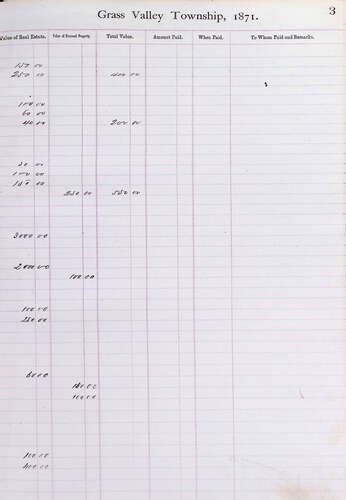 Grass Valley Township, 1871. 3
Value of Real Estate. Value of Personal Property. Total Value. Amount Paid. When Paid. To Whom Paid and Remarks.
150 00
250 00 400 00
100 00
60 00
40 00 200 00
00
00
150 00
250 00 550 00
3000 00
2000 00
100 00
100 00
250 00
60 00
150 00
100 00
100 00
400 00